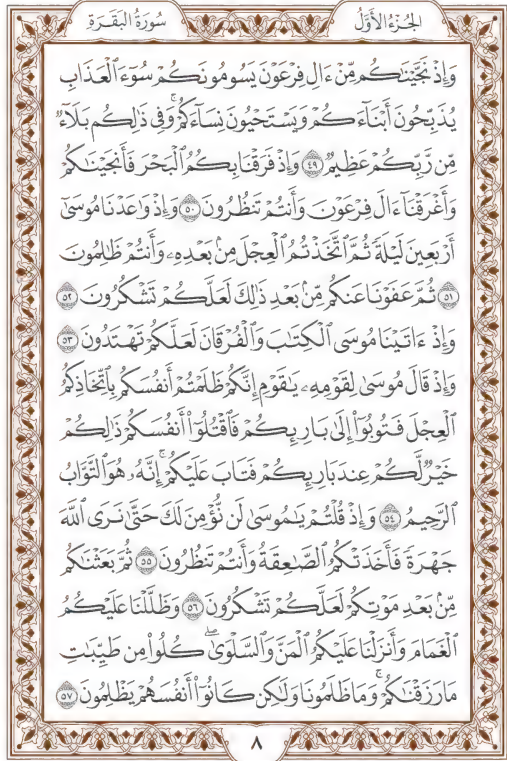 الجُزْءُ الأَوَّلُ
سُورَةُ البَقَرَةِ
وَإِذْ نَجَّيْنَٰكُم مِّنْ ءَالِ فِرْعَوْنَ يَسُومُونَكُمْ سُوٓءَ ٱلْعَذَابِ
يُذَبِّحُونَ أَبْنَآءَكُمْ وَيَسْتَحْيُونَ نِسَآءَكُمْ ۚ وَفِى ذَٰلِكُم بَلَآءٌ
مِّن رَّبِّكُمْ عَظِيمٌ ٤٩ وَإِذْ فَرَقْنَا بِكُمُ ٱلْبَحْرَ فَأَنجَيْنَٰكُمْ
وَأَغْرَقْنَآ ءَالَ فِرْعَوْنَ وَأَنتُمْ تَنظُرُونَ ٥٠ وَإِذْ وَٰعَدْنَا مُوسَىٰٓ
أَرْبَعِينَ لَيْلَةً ثُمَّ ٱتَّخَذْتُمُ ٱلْعِجْلَ مِنۢ بَعْدِهِۦ وَأَنتُمْ ظَٰلِمُونَ
٥١ ثُمَّ عَفَوْنَا عَنكُم مِّنۢ بَعْدِ ذَٰلِكَ لَعَلَّكُمْ تَشْكُرُونَ ٥٢
وَإِذْ ءَاتَيْنَا مُوسَى ٱلْكِتَٰبَ وَٱلْفُرْقَانَ لَعَلَّكُمْ تَهْتَدُونَ ٥٣
وَإِذْ قَالَ مُوسَىٰ لِقَوْمِهِۦ يَٰقَوْمِ إِنَّكُمْ ظَلَمْتُمْ أَنفُسَكُم بِٱتِّخَاذِكُمُ
ٱلْعِجْلَ فَتُوبُوٓا۟ إِلَىٰ بَارِئِكُمْ فَٱقْتُلُوٓا۟ أَنفُسَكُمْ ذَٰلِكُمْ
خَيْرٌ لَّكُمْ عِندَ بَارِئِكُمْ فَتَابَ عَلَيْكُمْ ۚ إِنَّهُۥ هُوَ ٱلتَّوَّابُ
ٱلرَّحِيمُ ٥٤ وَإِذْ قُلْتُمْ يَٰمُوسَىٰ لَن نُّؤْمِنَ لَكَ حَتَّىٰ نَرَى ٱللَّهَ
جَهْرَةً فَأَخَذَتْكُمُ ٱلصَّٰعِقَةُ وَأَنتُمْ تَنظُرُونَ ٥٥ ثُمَّ بَعَثْنَٰكُم
مِّنۢ بَعْدِ مَوْتِكُمْ لَعَلَّكُمْ تَشْكُرُونَ ٥٦ وَظَلَّلْنَا عَلَيْكُمُ
ٱلْغَمَامَ وَأَنزَلْنَا عَلَيْكُمُ ٱلْمَنَّ وَٱلسَّلْوَىٰ ۖ كُلُوا۟ مِن طَيِّبَٰتِ
مَا رَزَقْنَٰكُمْ ۖ وَمَا ظَلَمُونَا وَلَٰكِن كَانُوٓا۟ أَنفُسَهُمْ يَظْلِمُونَ ٥٧
٨